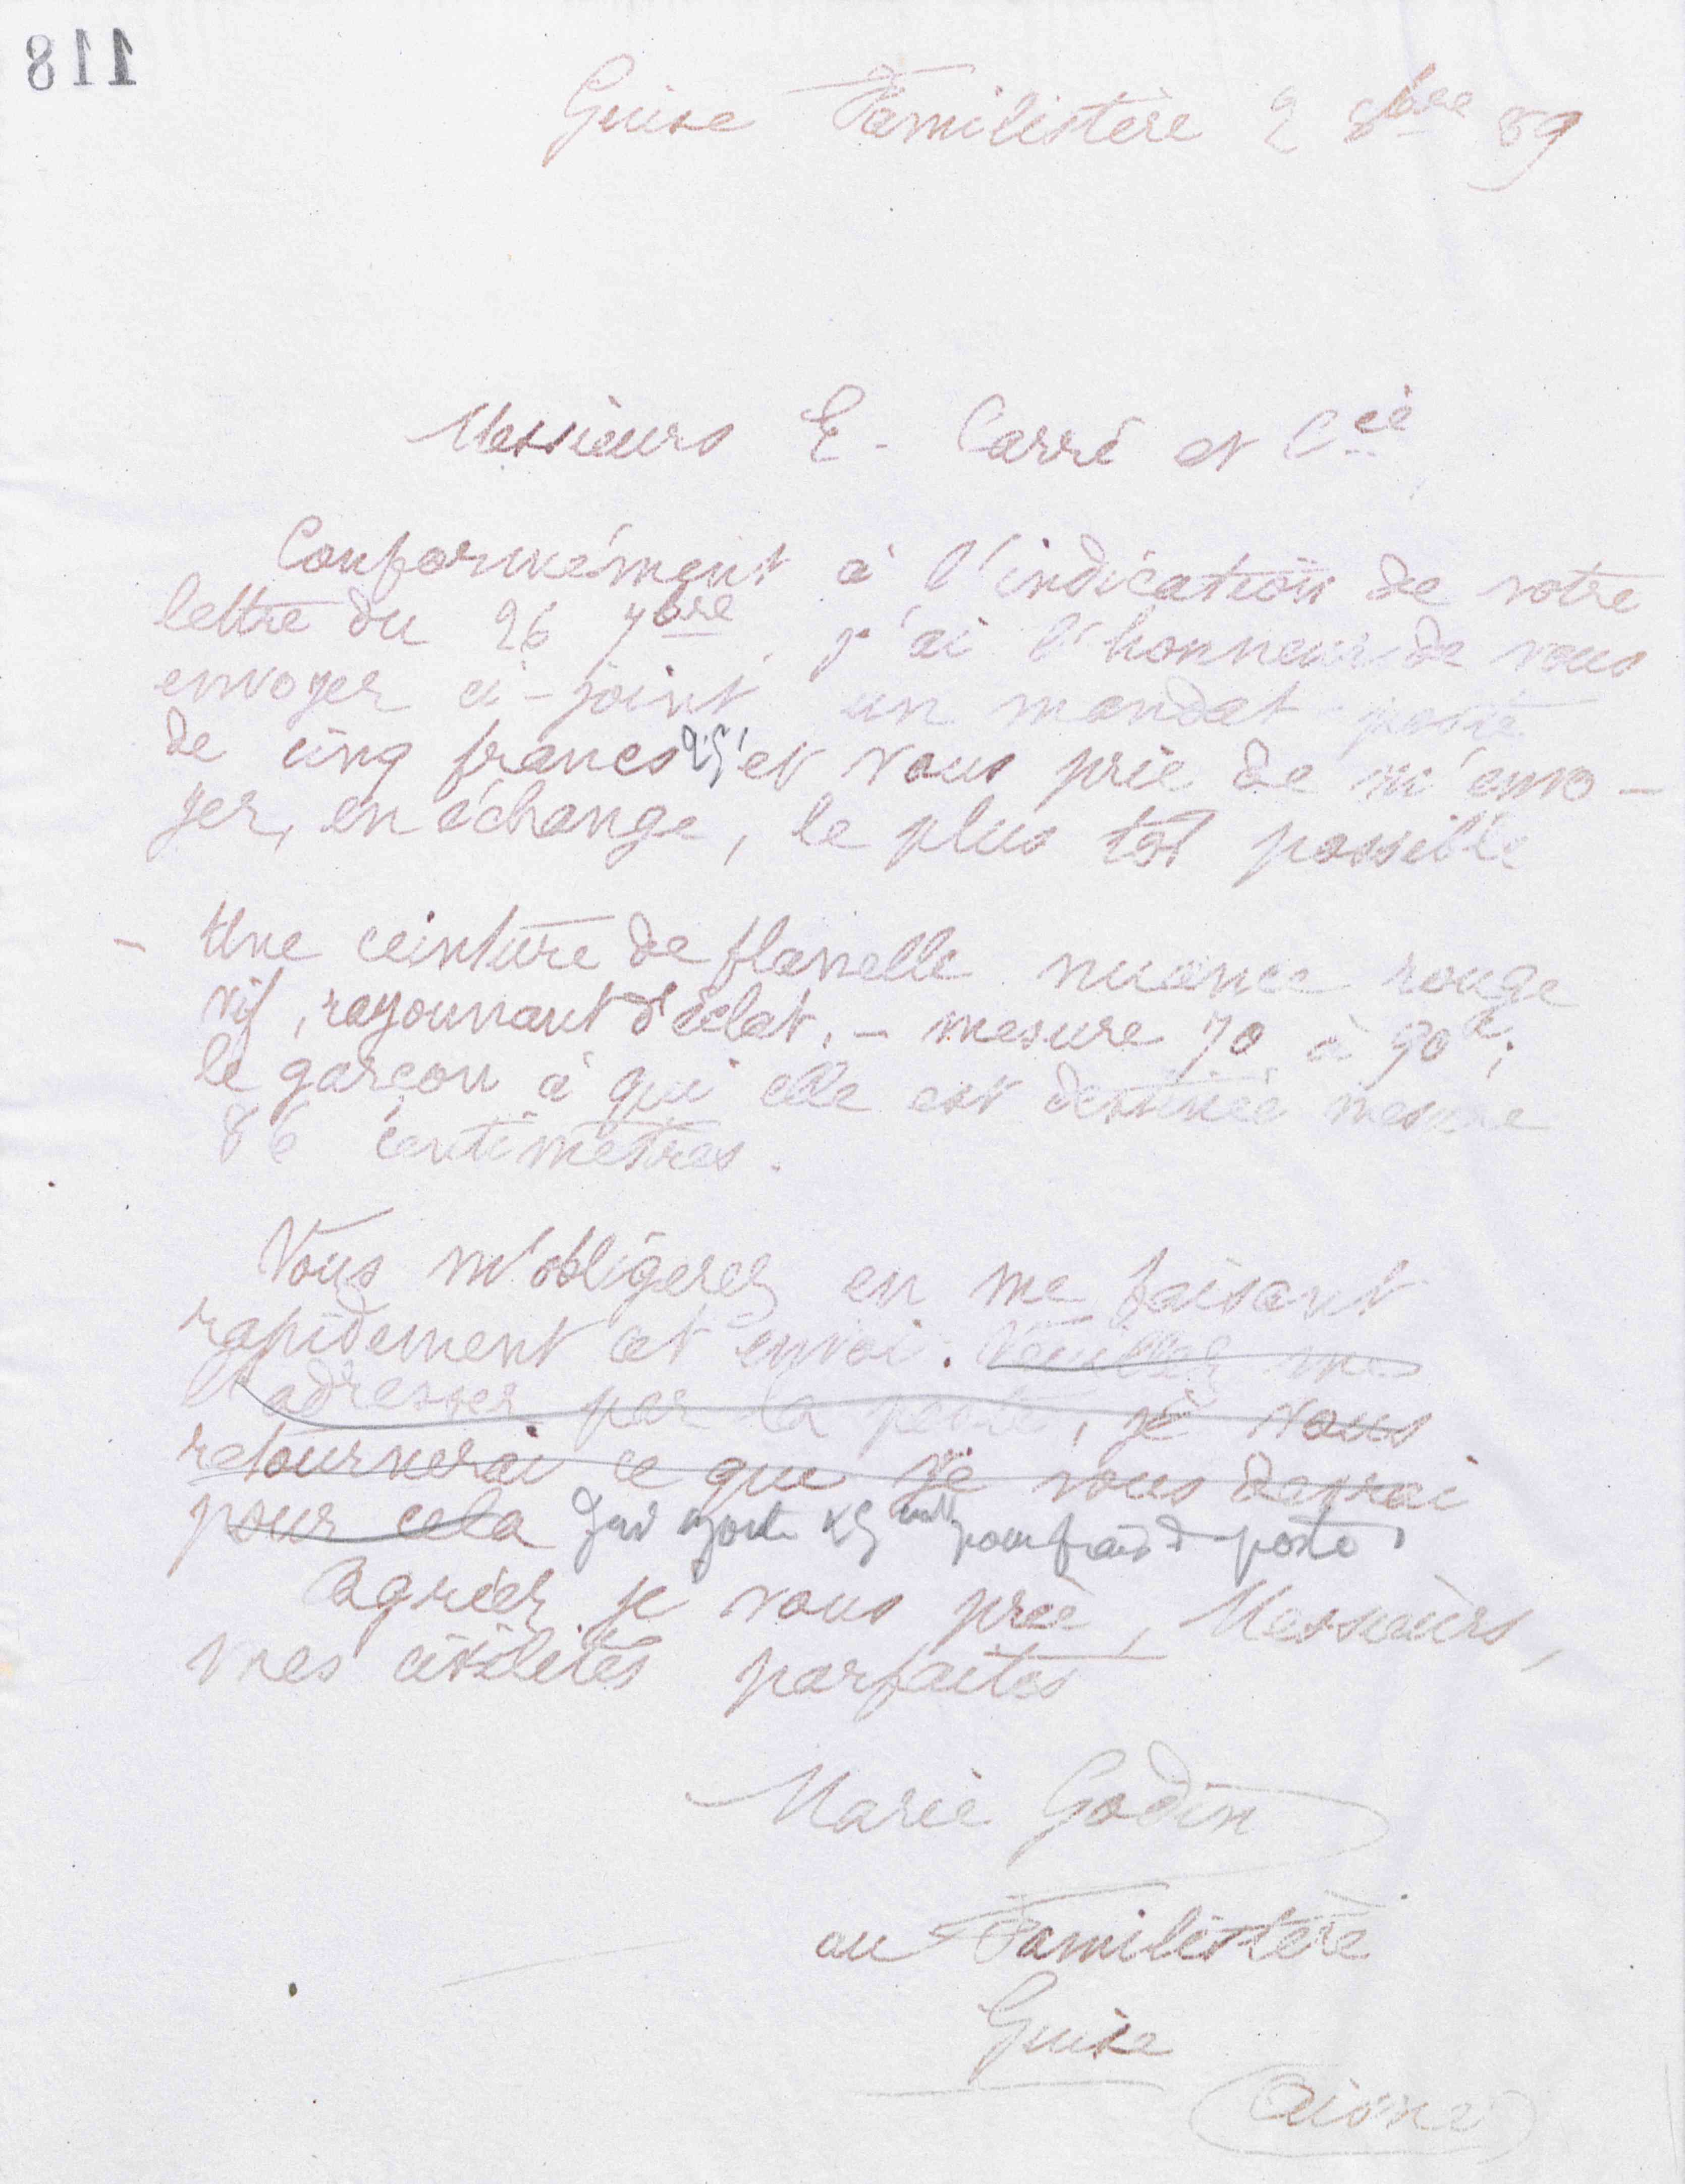 118
Guise Familistère 2 8bre 89
Messieurs E. Carré et Cie
Conformément à l'indication de votre
lettre du 26 7bre, j'ai l'honneur de vous
envoyer ci-joint un mandat-poste
de cinq francs 25 et vous prie de m'envo-
yer, en échange, le plus tôt possible
- Une ceinture de flanelle nuance rouge
vif, rayonnant d'éclat. - mesure 70 à 90c;
le garçon à qui elle est destinée mesure
86 centimètres.
Vous m'obligerez en me faisant
rapidement cet envoi. Veuillez me
l'adresser par la poste, je vous
retournerai ce que je vous devrai
pour cela J'ai ajouté 25 cent pour frais de poste.
Agréez je vous prie, Messieurs,
mes civilités parfaites
Marie Godin
au Familistère
Guise
Aisne